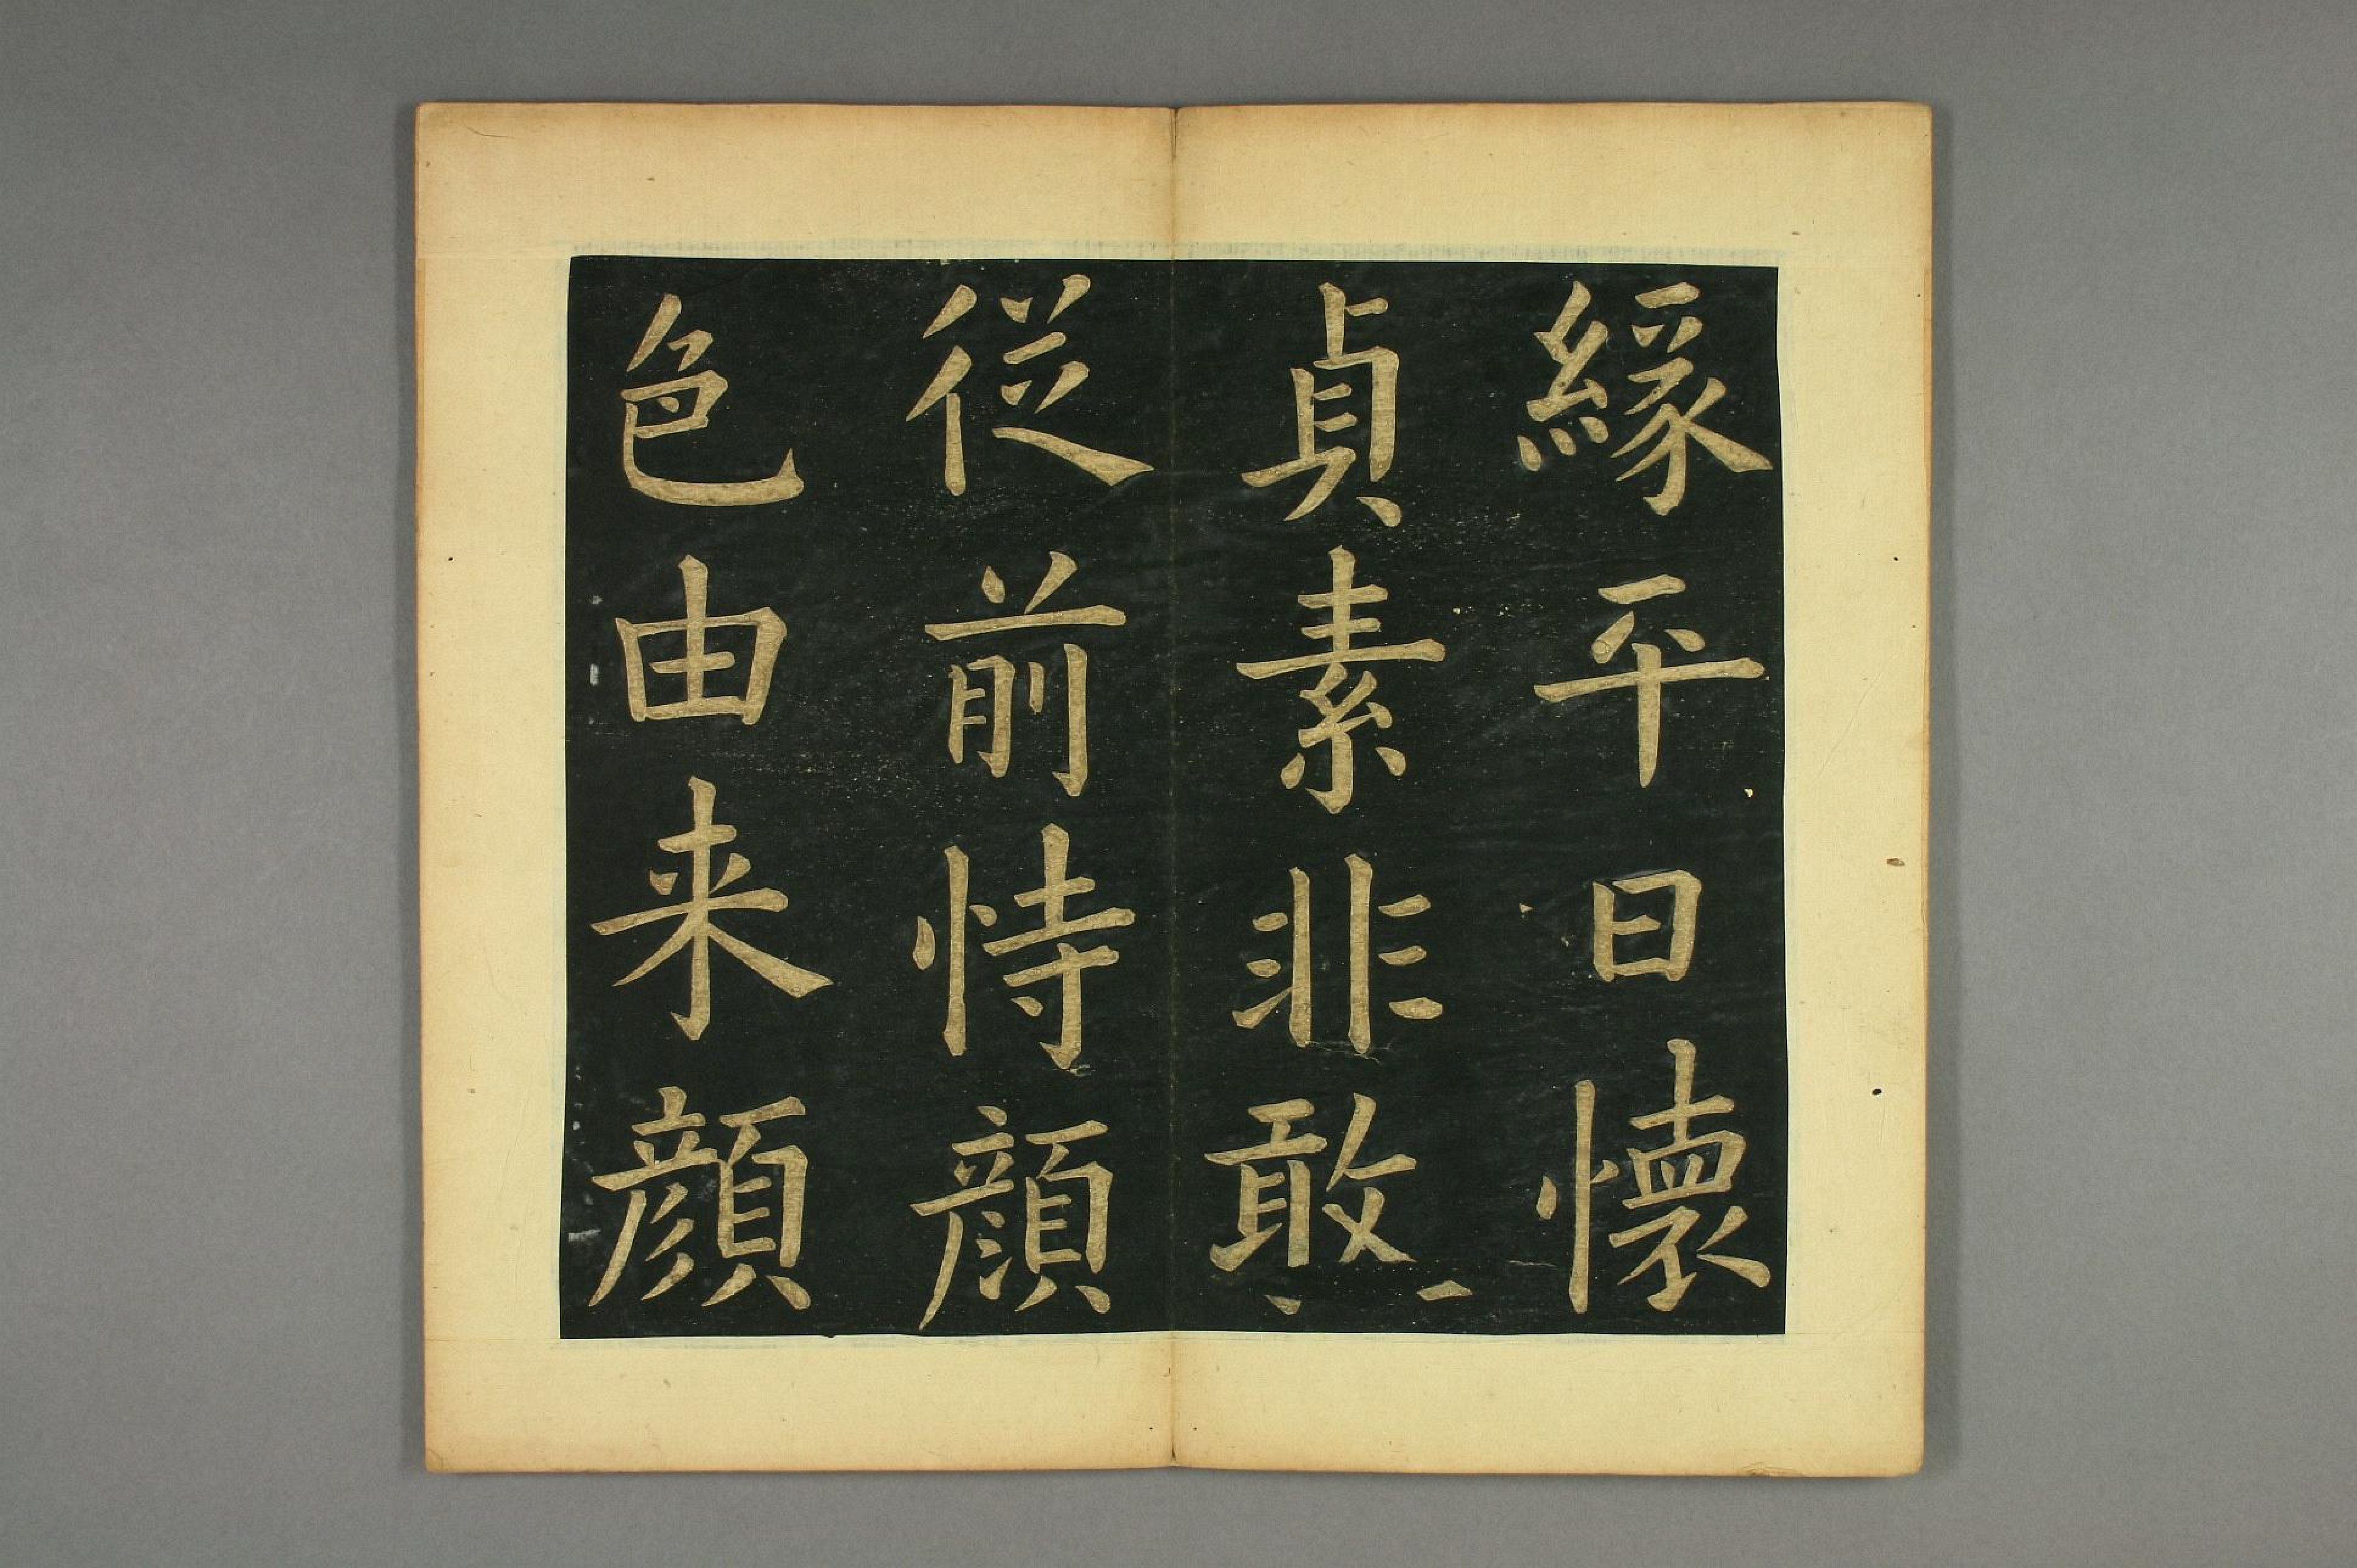 緣平日懷
貞素非敢
従前恃顔
色由来顔